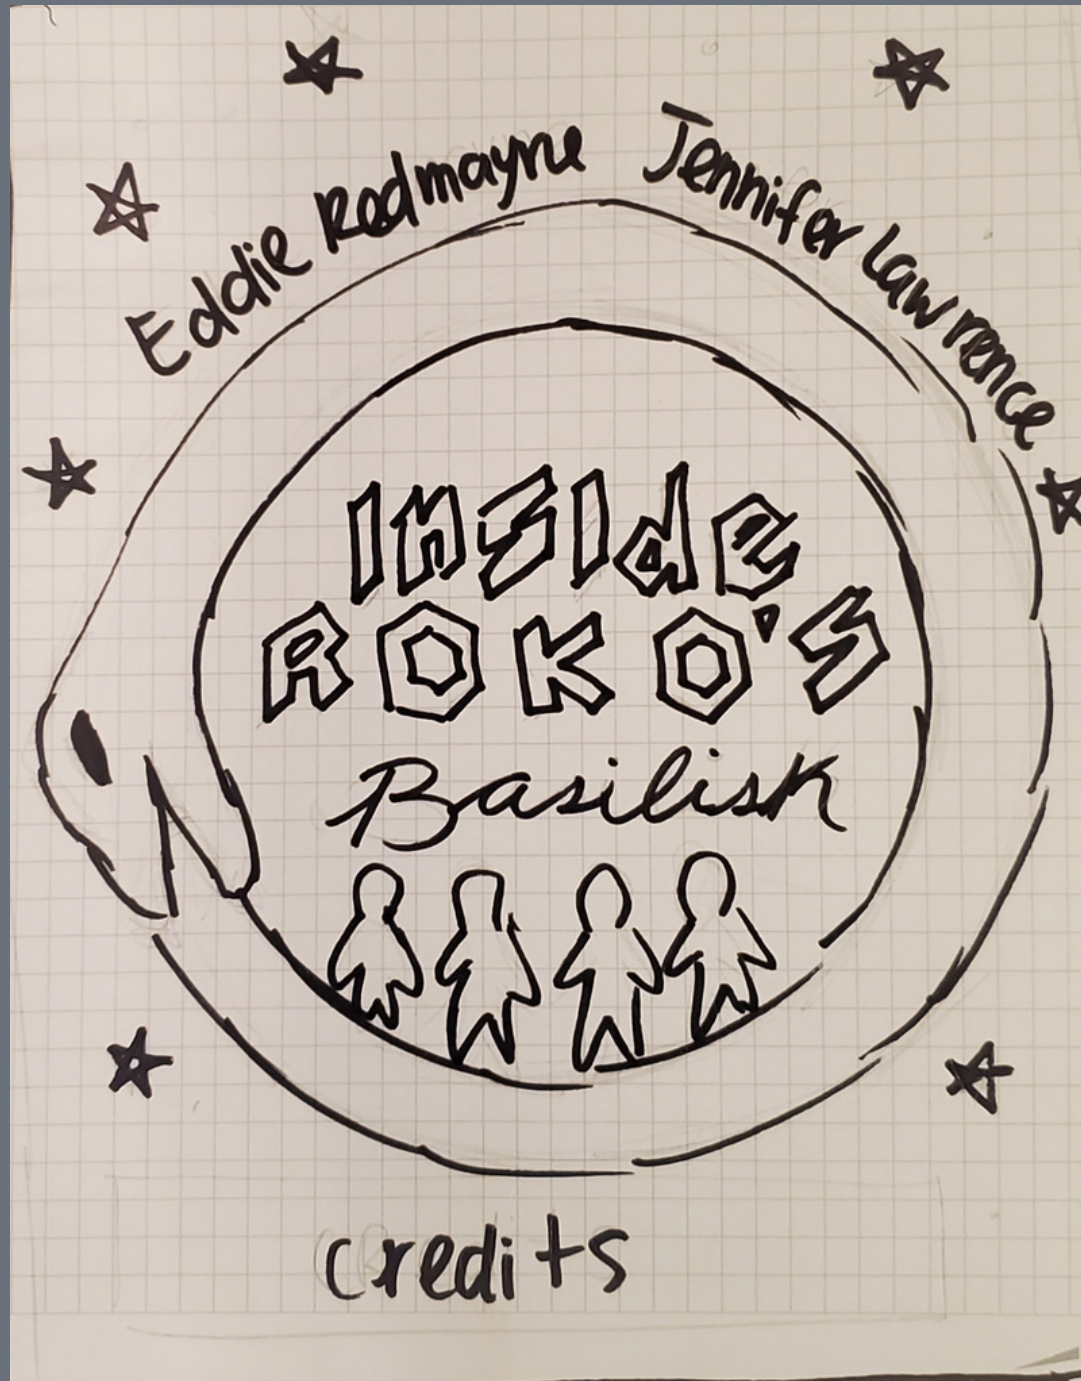 Eddie Redmayne Jennifer Lawrence
INSIde
ROKO'S
Basilisk
credits